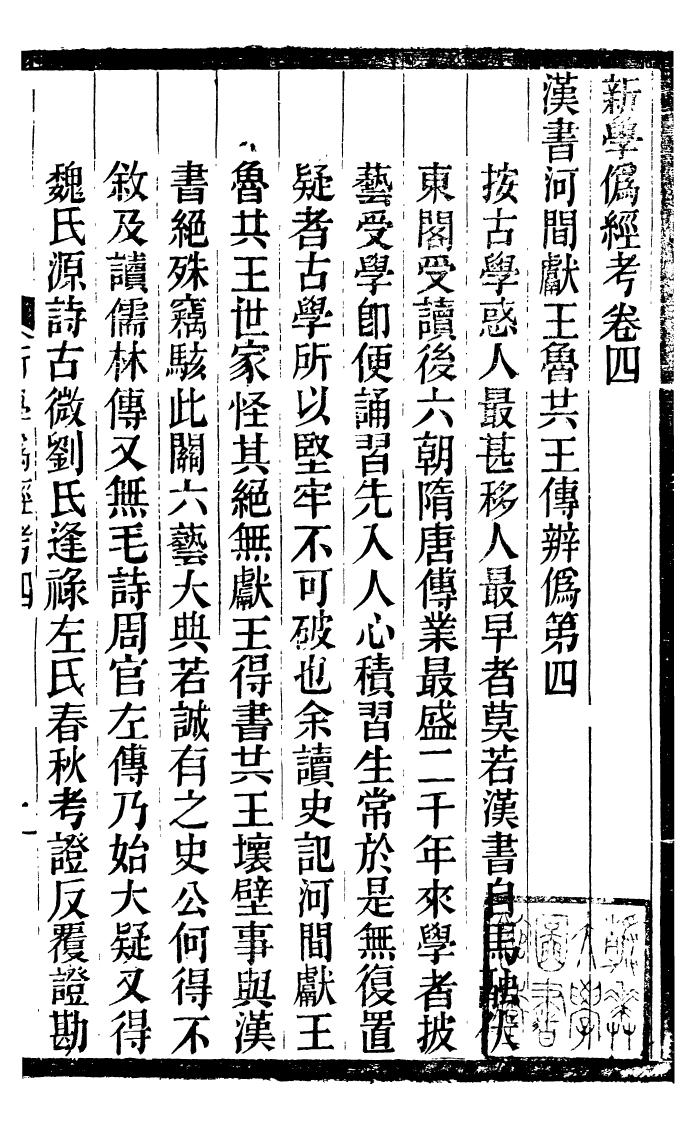 新學僞經考卷四
漢書河間獻王魯共王傳辨僞第四
按古學惑人最甚移人最早者莫若漢書自馬融伏
東閣受讀後六朝隋唐傳業最盛二千年來學者披
藝受學卽便誦習先入人心積習生常於是無復置
疑者古學所以堅牢不可破也余讀史記河間獻王
魯共王世家怪其絕無獻王得書共王壞壁事與漢
書絕殊竊駭此關六藝大典若誠有之史公何得不
敘及讀儒林傳又無毛詩周官左傳乃始大疑又得
魏氏源詩古微劉氏逢祿左氏春秋考證反覆證勘
新學僞經考四
一